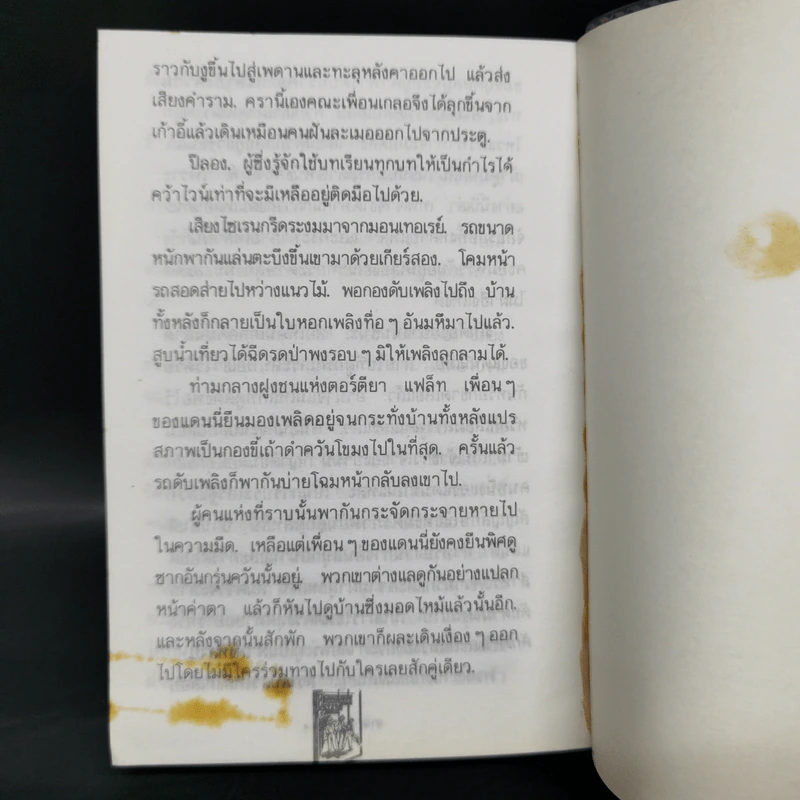 ราวกับงูขึ้นไปสู่เพดานและทะลุหลังคาออกไป แล้วส่ง
เสียงคำราม. ครานี้เองคณะเพื่อนเกลอจึงได้ลุกขึ้นจาก
เก้าอี้แล้วเดินเหมือนคนฝันละเมอออกไปจากประตู.
ปิลอง, ผู้ซึ่งรู้จักใช้บทเรียนทุกบทให้เป็นกำไรได้
คว้าไวน์เท่าที่จะมีเหลืออยู่ติดมือไปด้วย.
เสียงไซเรนกรีดระงมมาจากมอนเทอเรย์. รถขนาด
หนักพากันแล่นตะบึงขึ้นเขามาด้วยเกียร์สอง. โคมหน้า
รถสอดส่ายไปหว่างแนวไม้. พอกองดับเพลิงไปถึง บ้าน
ทั้งหลังก็กลายเป็นใบหอกเพลิงทื่อ ๆ อันมหึมาไปแล้ว.
สูบน้ำเที่ยวได้ฉีดรดป่าพงรอบ ๆ มิให้เพลิงลุกลามได้.
ท่ามกลางฝูงชนแห่งตอร์ตียา แฟล็ท เพื่อน ๆ
ของแดนนี่ยืนมองเพลิดอยู่จนกระทั่งบ้านทั้งหลังแปร
สภาพเป็นกองขี้เถ้าดำควันโขมงไปในที่สุด. ครั้นแล้ว
รถดับเพลิงก็พากันบ่ายโฉมหน้ากลับลงเขาไป.
ผู้คนแห่งที่ราบนั้นพากันกระจัดกระจายหายไป
ในความมืด. เหลือแต่เพื่อน ๆ ของแดนนี่ยังคงยืนพิศดู
ซากอันกรุ่นควันนั้นอยู่. พวกเขาต่างแลดูกันอย่างแปลก
หน้าค่าตา แล้วก็หันไปดูบ้านซึ่งมอดไหม้แล้วนั้นอีก.
และหลังจากนั้นสักพัก พวกเขาก็ผละเดินเงื่อง ๆ ออก
ไปโดยไม่มีใครร่วมทางไปกับใครเลยสักคู่เดียว.